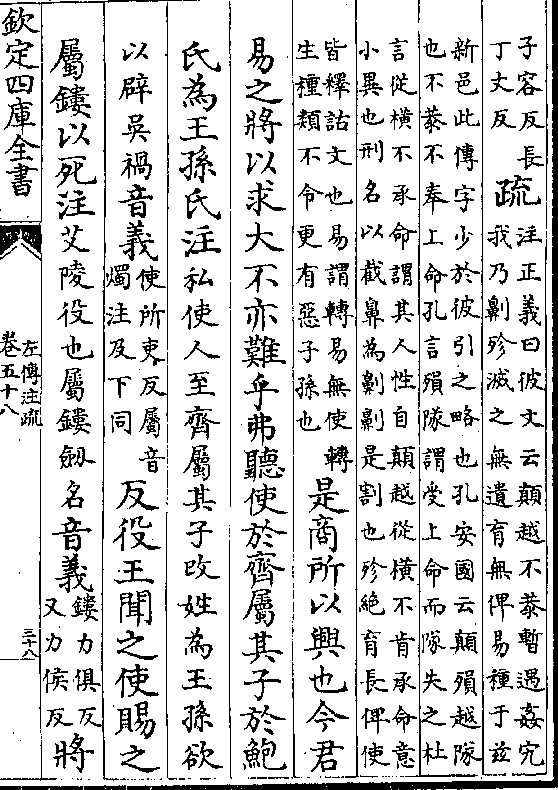 子容反長
丁丈反
疏
注正義曰彼文云顛越不恭暫遇姦宄
我乃劓殄滅之無遺育無俾易種于兹
新邑此傳字少於彼引之略也孔安國云顛殞越隊
也不恭不奉上命孔言殞隊謂受上命而隊失之杜
言從横不承命謂其人性自顛越從横不肯承命意
小異也刑名以截鼻為劓劓是割也殄絶育長俾使
皆釋詁文也易謂轉易無使轉
生種類不令更有惡子孫也
是商所以興也今君
易之將以求大不亦難乎弗聽使於齊屬其子於鮑
氏為王孫氏注私使人至齊屬其子改姓為王孫欲
以辟吳禍音義
使所吏反屬音
燭注及下同
反役王聞之使賜之
屬鏤以死注艾陵役也屬鏤劒名音義
鏤力俱反
又力侯反
將
欽定四庫全書
左傳注疏
卷五十八